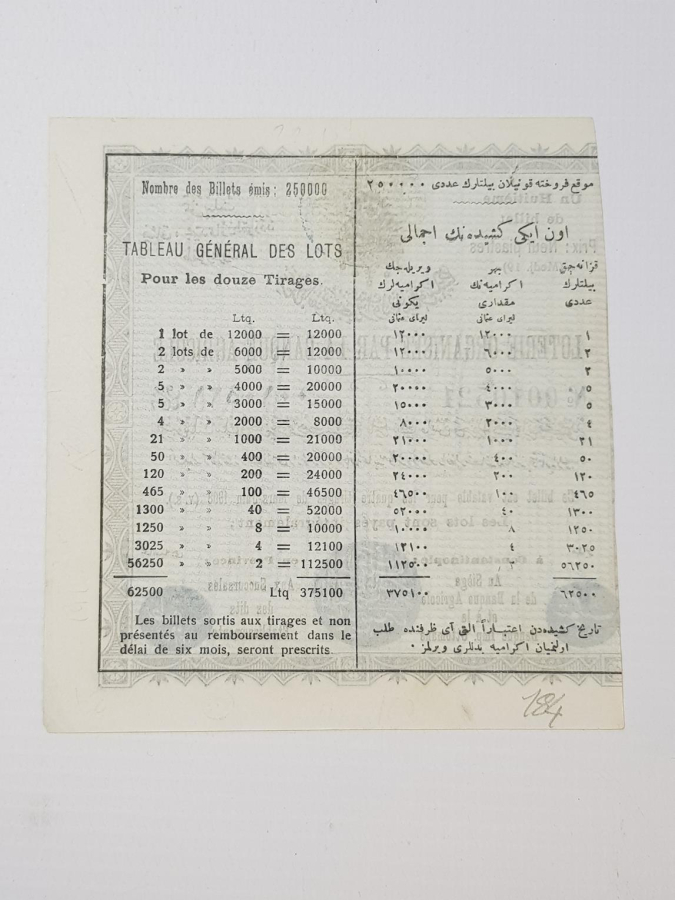 Nombre des Billets émis: 250000
TABLEAU GÉNÉRAL DES LOTS
Pour les douze Tirages.
Ltq. Ltq.
1 lot de 12000 = 12000
2 lots de 6000 = 12000
2 » » 5000 = 10000
5 » » 4000 = 20000
5 » » 3000 = 15000
4 » » 2000 = 8000
21 » » 1000 = 21000
50 » » 400 = 20000
120 » » 200 = 24000
465 » » 100 = 46500
1300 » » 40 = 52000
1250 » » 8 = 10000
3025 » » 4 = 12100
56250 » » 2 = 112500
62500 Ltq 375100
Les billets sortis aux tirages et non
présentés au remboursement dans le
délai de six mois, seront prescrits.
موقع فروخته قونیلان بیلتلرك عددی ٢٥٠٠٠٠
اون ایكی كشیده‌نك اجمالی
ویریله‌جك بهر قزانه‌جق
اكرامیه‌لرك اكرامیه‌نك بیلتلرك
یكونی مقداری عددی
لیرای عثمانی لیرای عثمانی
١٢٠٠٠ ١٢٠٠٠ ١
١٢٠٠٠ ٦٠٠٠ ٢
١٠٠٠٠ ٥٠٠٠ ٢
٢٠٠٠٠ ٤٠٠٠ ٥
١٥٠٠٠ ٣٠٠٠ ٥
٨٠٠٠ ٢٠٠٠ ٤
٢١٠٠٠ ١٠٠٠ ٢١
٢٠٠٠٠ ٤٠٠ ٥٠
٢٤٠٠٠ ٢٠٠ ١٢٠
٤٦٥٠٠ ١٠٠ ٤٦٥
٥٢٠٠٠ ٤٠ ١٣٠٠
١٠٠٠٠ ٨ ١٢٥٠
١٢١٠٠ ٤ ٣٠٢٥
١١٢٥٠٠ ٢ ٥٦٢٥٠
٣٧٥١٠٠ ٦٢٥٠٠
تاریخ كشیده‌دن اعتباراً التی آی ظرفنده طلب
اولنمیان اكرامیه بدللری ویرلمز .
184